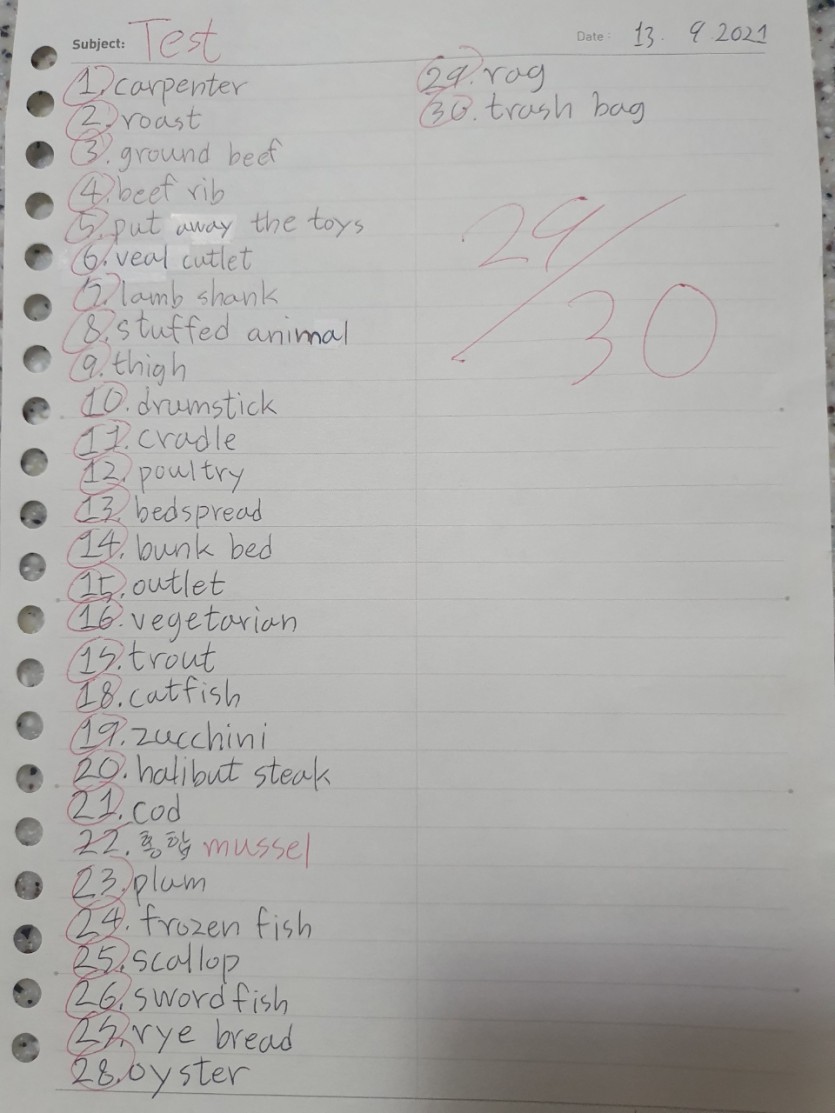 Subject: Test
Date: 13. 9 2021
1. carpenter
2. roast
3. ground beef
4. beef rib
5. put away the toys
6. veal cutlet
7. lamb shank
8. stuffed animal
9. thigh
10. drumstick
11. cradle
12. poultry
13. bedspread
14. bunk bed
15. outlet
16. vegetarian
17. trout
18. catfish
19. zucchini
20. halibut steak
21. cod
22. 홍합 mussel
23. plum
24. frozen fish
25. scallop
26. swordfish
27. rye bread
28. oyster
29. rag
30. trash bag
29/30